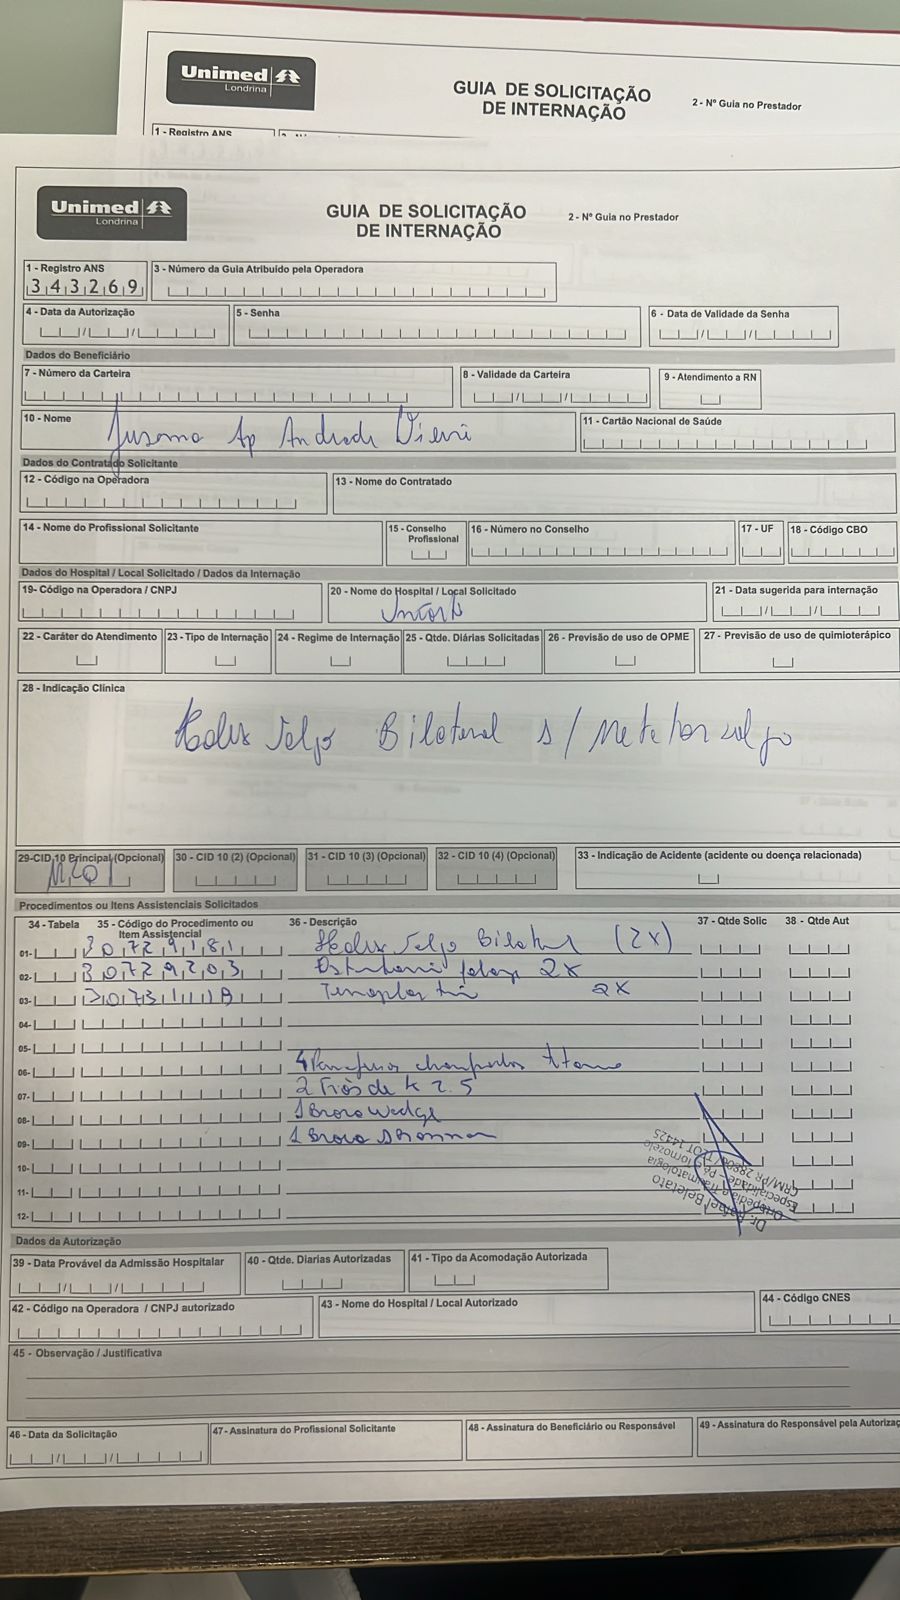 Unimed
Londrina
GUIA DE SOLICITAÇÃO
DE INTERNAÇÃO
2 - Nº Guia no Prestador
1 - Registro ANS
Unimed
Londrina
GUIA DE SOLICITAÇÃO
DE INTERNAÇÃO
2 - Nº Guia no Prestador
1 - Registro ANS
343269
3 - Número da Guia Atribuído pela Operadora
4 - Data da Autorização
5 - Senha
6 - Data de Validade da Senha
Dados do Beneficiário
7 - Número da Carteira
8 - Validade da Carteira
9 - Atendimento a RN
10 - Nome
Ap Andrade
11 - Cartão Nacional de Saúde
Dados do Contratado Solicitante
12 - Código na Operadora
13 - Nome do Contratado
14 - Nome do Profissional Solicitante
15 - Conselho
Profissional
16 - Número no Conselho
17 - UF
18 - Código CBO
Dados do Hospital / Local Solicitado / Dados da Internação
19- Código na Operadora / CNPJ
20 - Nome do Hospital / Local Solicitado
21 - Data sugerida para internação
22 - Caráter do Atendimento
23 - Tipo de Internação
24 - Regime de Internação
25 - Qtde. Diárias Solicitadas
26 - Previsão de uso de OPME
27 - Previsão de uso de quimioterápico
28 - Indicação Clínica
Bilateral s/
29-CID 10 Principal (Opcional)
M201
30 - CID 10 (2) (Opcional)
31 - CID 10 (3) (Opcional)
32 - CID 10 (4) (Opcional)
33 - Indicação de Acidente (acidente ou doença relacionada)
Procedimentos ou Itens Assistenciais Solicitados
34 - Tabela
35 - Código do Procedimento ou
Item Assistencial
36 - Descrição
37 - Qtde Solic
38 - Qtde Aut
01- 30729181 (2x)
02- 30729203 2x
03- 2x
04-
05-
06- 4
07- 2 Fios de K 2.5
08- 1 Broca Wedge
09- 1 Broca
10-
11-
12-
Dr. Rafael Beletato
Ortopedia e Traumatologia
Especialidade - Pé e Tornozelo
CRM/PR 28806 / TEOT 14425
Dados da Autorização
39 - Data Provável da Admissão Hospitalar
40 - Qtde. Diarias Autorizadas
41 - Tipo da Acomodação Autorizada
42 - Código na Operadora / CNPJ autorizado
43 - Nome do Hospital / Local Autorizado
44 - Código CNES
45 - Observação / Justificativa
46 - Data da Solicitação
47- Assinatura do Profissional Solicitante
48 - Assinatura do Beneficiário ou Responsável
49 - Assinatura do Responsável pela